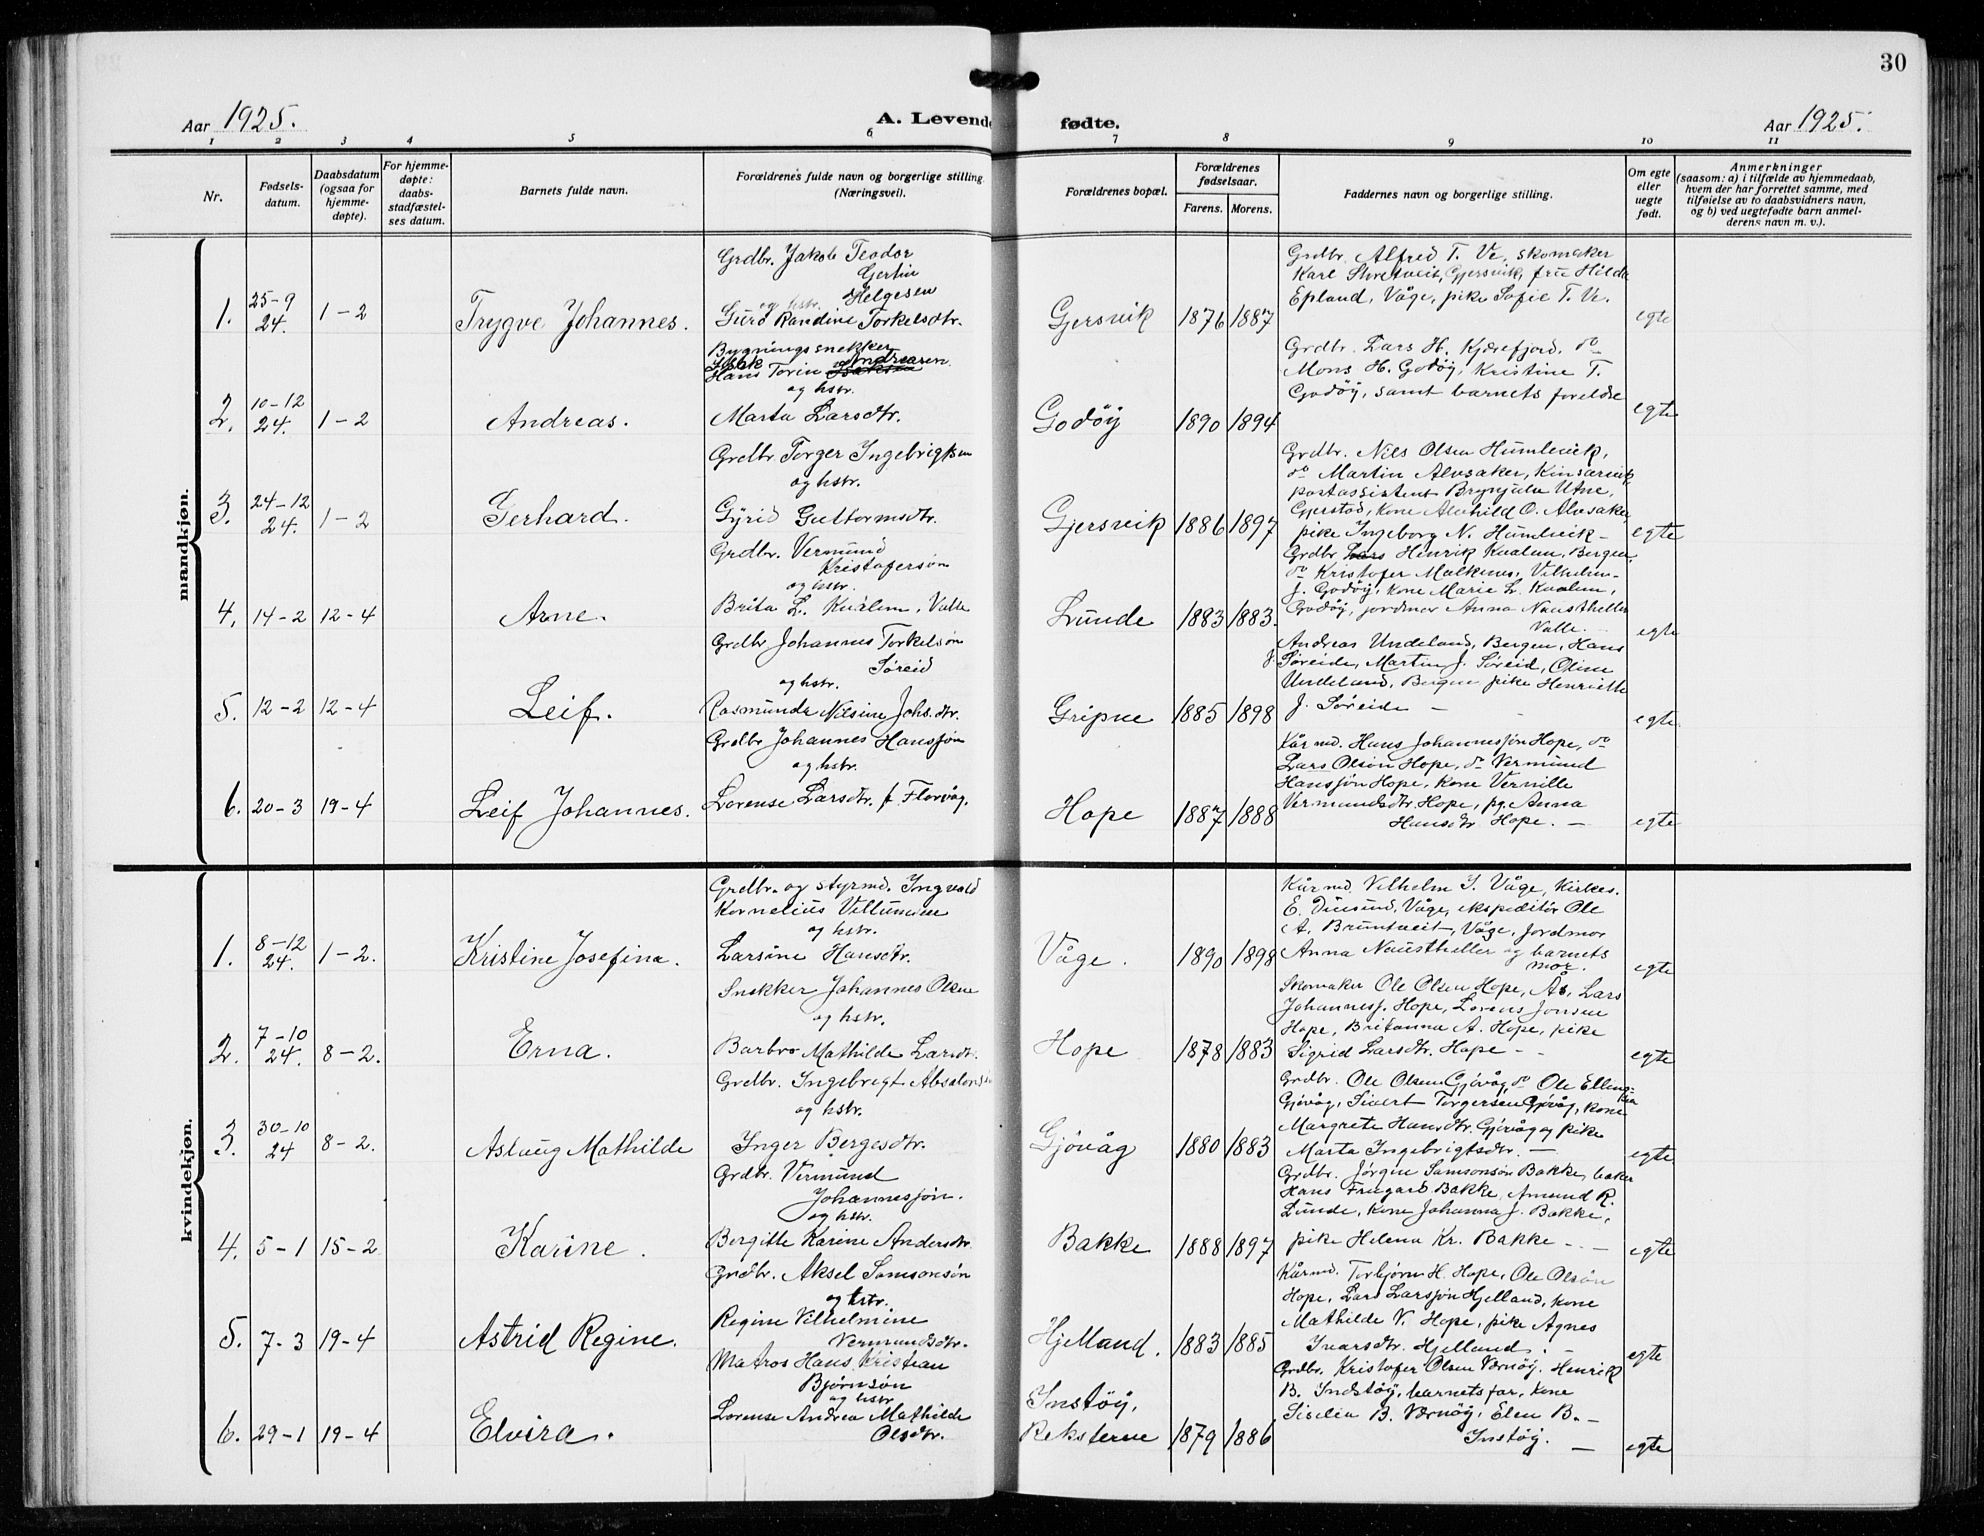 30
Aar 1925.
A. Levende fødte.
Aar 1925.
1 2 3 4 5 6 7 8 9 10 11
Nr.
Fødsels-
datum.
Daabsdatum
(ogsaa for
hjemme-
døpte).
For hjemme-
døpte:
daabs-
stadfæstel-
ses datum.
Barnets fulde navn.
Forældrenes fulde navn og borgerlige stilling.
(Næringsvei).
Forældrenes bopæl.
Forældrenes
fødselsaar.
Farens. Morens.
Faddernes navn og borgerlige stilling.
Om egte
eller
uegte
født.
Anmerkninger
(saasom: a) i tilfælde av hjemmedaab,
hvem der har forrettet samme, med
tilføielse av to daabsvidners navn,
og b) ved uegtefødte barn anmel-
derens navn m. v.).
mandkjøn.
1. 25-9 24. 1-2 Trygve Johannes.
Grdbr. Jakob Teodor
Gertin
Helgesen
og hstr.
Guro Randine Torkelsdtr.
Gjersvik 1876 1887
Grdbr. Alfred T. Ve, skomaker
Karl Storetveit, Gjersvik, frue Hilda
Epland, Våge, pike Sofie T. Ve.
egte
2. 10-12 24. 1-2 Andreas.
Bygningssnekker
Isak Andreasen
Hans Torin
og hstr.
Marta Larsdtr.
Godöy 1890 1894
Grdbr. Lars H. Kjærefjord, do
Mons H. Godöy, Kristine T.
Godöy, samt barnets foreldre
egte
3. 24-12 24. 1-2 Gerhard.
Grdbr. Torger Ingebrigtsen
og hstr.
Gyrid Guttormsdtr.
Gjersvik 1886 1897
Grdbr. Nils Olsen Humlevik,
do Martin Alvsaker, Kinsarvik
postassistent Brynjulv Utne,
Gjerstad, kone Alvhild O. Alvsaker,
pike Ingeborg N. Humlevik -
egte
4. 14-2 12-4 Arne.
Grdbr. Vermund
Kristofersøn
og hstr.
Brita L. Kvalem, Valle
Lunde 1883 1883.
Grdbr. Lars Henrik Kvalem, Bergen,
do Kristofer Malkenes, Vilhelm
J. Godöy, kone Marie L. Kvalem,
Godöy, jordmor Anna Naustheller
Valle.
egte
5. 12-2 12-4 Leif.
Grdbr Johannes Torkelsøn
Søreid
og hstr.
Rasmunda Nilsine Johs.dtr.
Gripne 1885 1898
Andreas Undeland, Bergen, Hans
J. Søreide, Martin J. Søreid, Oline
Undeland, Bergen, pike Henriette
J. Søreide -
egte
6. 20-3 19-4 Leif Johannes.
Grdbr Johannes Hanssøn
og hstr.
Lorense Larsdtr. f. Florvåg.
Hope 1887 1888
Kårmd. Hans Johannessøn Hope, do
Lars Olsøn Hope, do Vermund
Hanssøn Hope, kone Vernille
Vermundsdtr. Hope, pg. Anna
Hansdtr. Hope. -
egte
kvindekjøn.
1. 8-12 24. 1-2. Kristine Josefina.
Grdbr. og styrmd. Ingvald
Kornelius Villumsen
og hstr.
Larsine Hansdtr.
Våge. 1890 1898
Kårmd. Vilhelm I. Våge, kirkes.
E. Døsund, Våge, ekspeditör Ole
A. Bruntveit, Våge, jordmor
Anna Naustheller og barnets
mor.
egte
2. 7-10 24. 8-2. Erna.
Snekker Johannes Olsen
og hstr.
Barbro Mathilde Larsdtr.
Hope 1878 1883
Skomaker Ole Olsen Hope, Ås, Lars
Johanness. Hope, Lorens Jonsen
Hope, Britanna A. Hope, pike
Sigrid Larsdtr. Hope -
egte
3. 30-10 24 8-2. Aslaug Mathilde
Grdbr. Ingebrigt Absalonsen
og hstr.
Inger Bergesdtr.
Gjövåg 1880 1883
Grdbr. Ole Olsen Gjövåg, do Ole Ellings-
Gjövåg, Sivert Torgersen Gjövåg, kone
Margrete Hansdtr. Gjövåg og pike
Marta Ingebrigtsdtr. -
egte
4. 5-1 15-2 Karine.
Grdbr. Vermund
Johannessøn.
og hstr.
Bergitte Karine Andersdtr.
Bakke 1888 1897
Grdbr. Jørgen Samsonsøn Bakke, baker
Hans Frugård Bakke, Amund R.
Lunde, kone Johanna J. Bakke,
pike Helena Kr. Bakke -
egte
5. 7-3 19-4 Astrid Regine.
Grdbr. Aksel Samsonsøn
og hstr.
Regine Vilhelmine
Vermundsdtr.
Hjelland. 1883 1885
Kårmd. Torbjørn H. Hope, Ole Olsøn
Hope, Lars Larssøn Hjelland, kone
Mathilde V. Hope, pike Agnes
Ivarsdtr. Hjelland. -
egte
6. 29-1 19-4 Elvira.
Matros Hans Kristian
Bjørnsøn
og hstr
Lorense Andrea Mathilde
Olsdtr.
Instöy,
Reksterne 1879 1886
Grdbr. Kristofer Olsen Værnöy, Henrik
B. Indstöy, barnets far, kone
Siselia B. Værnöy, Elen B. -
Instöy. -
egte